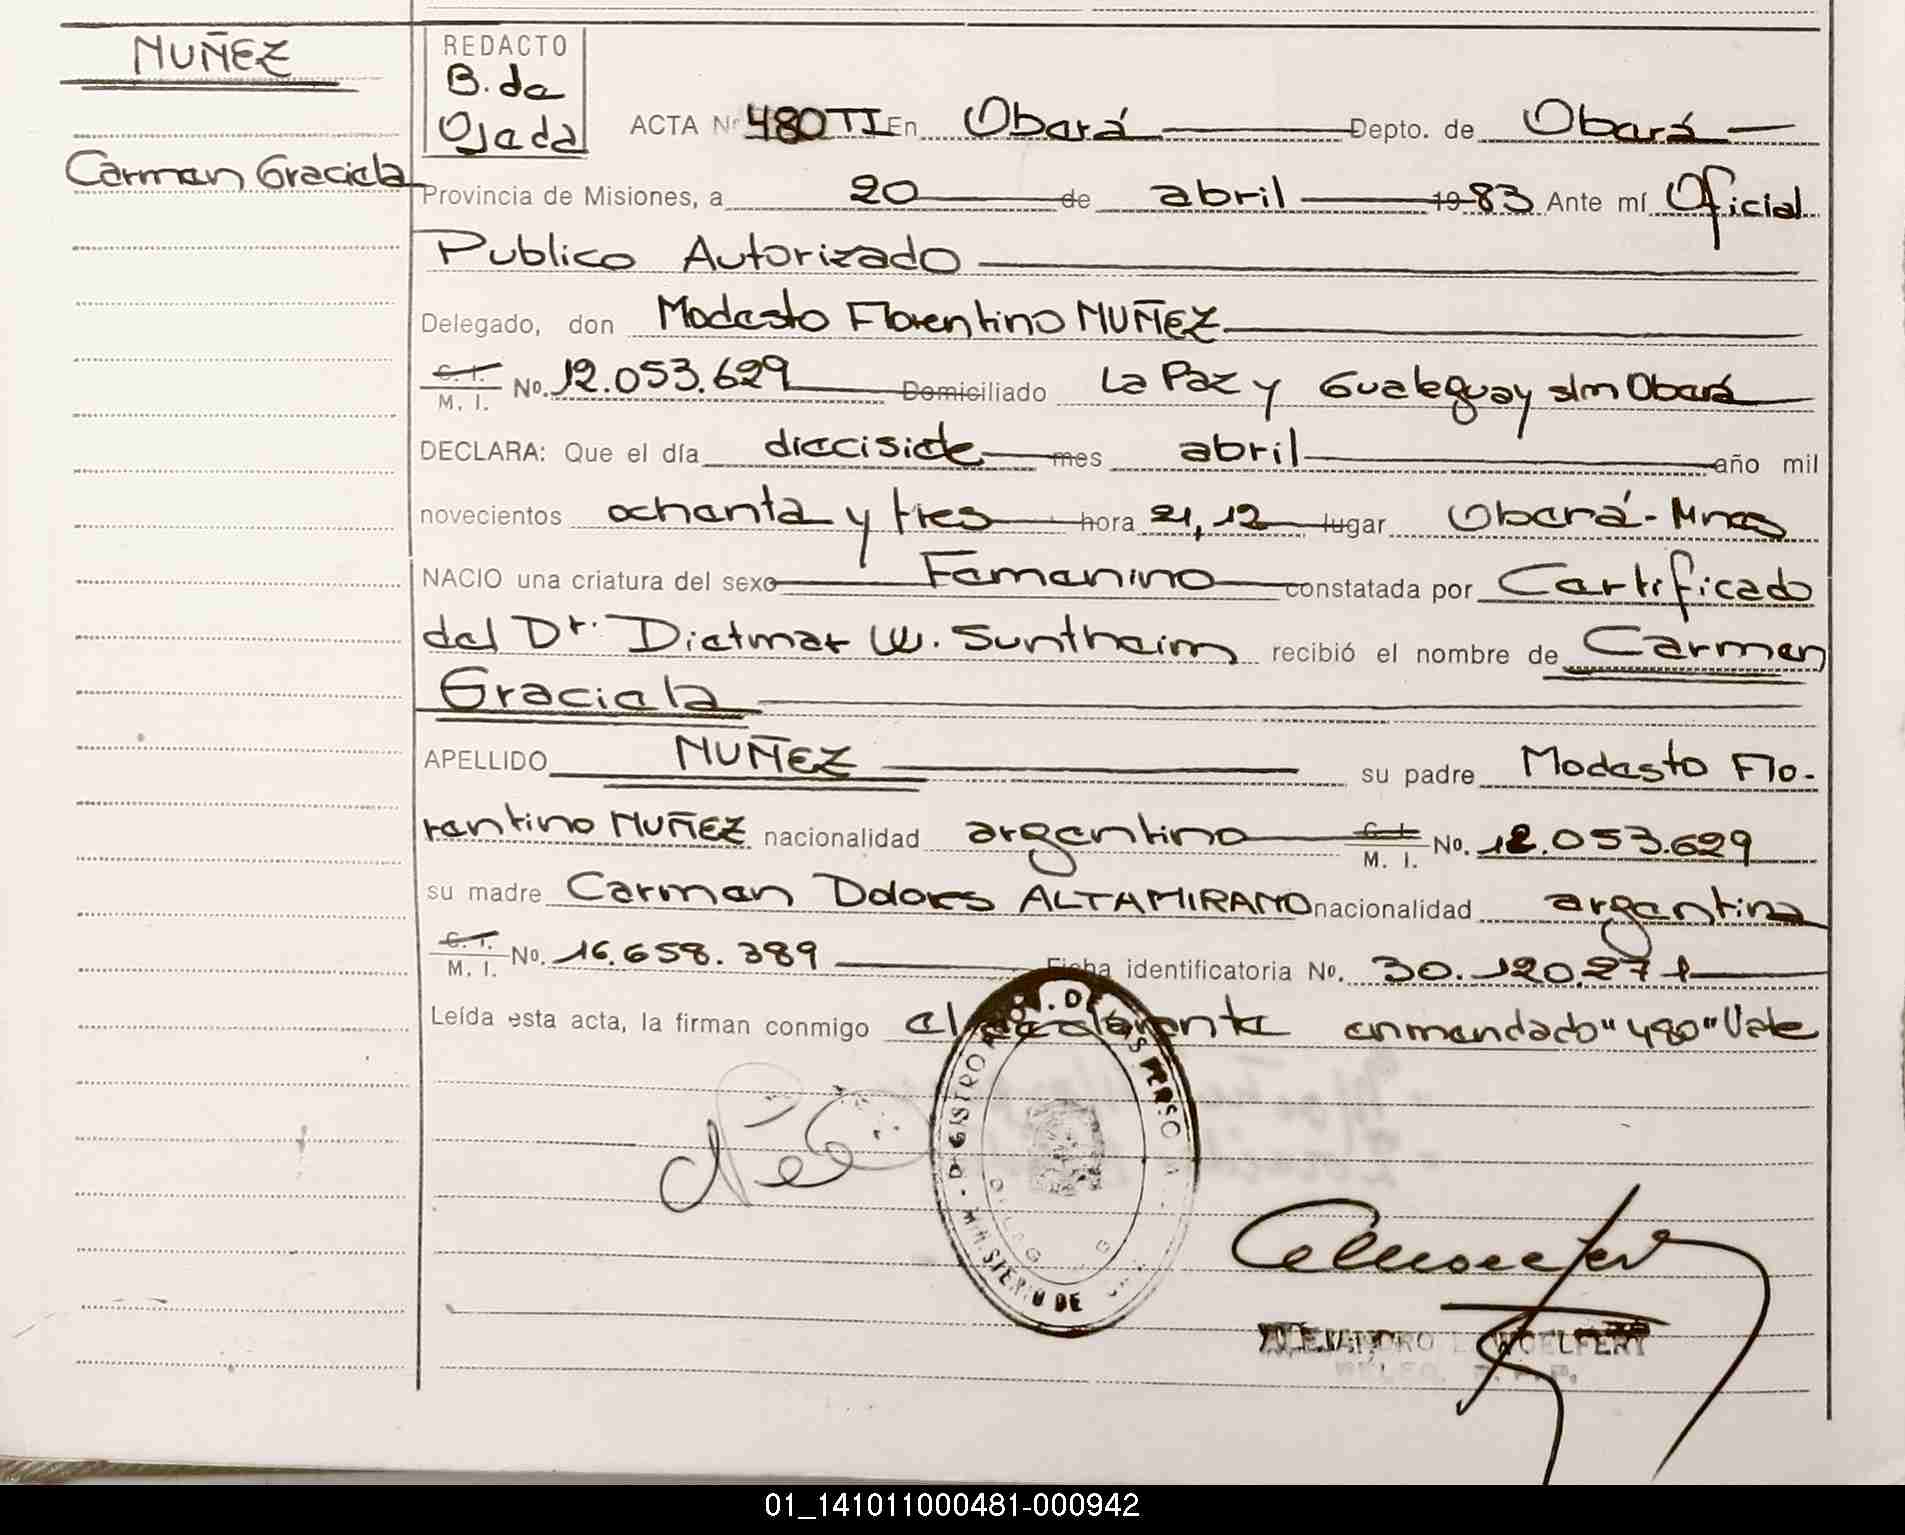 NUÑEZ
Carmen Graciela
REDACTO
B. de
Ojeda
ACTA Nº 480 TI En Oberá Depto. de Oberá
Provincia de Misiones, a 20 de abril 1983 Ante mí Oficial
Publico Autorizado
Delegado, don Modesto Florentino NUÑEZ
C. I.
M. I. No. 12.053.629 Domiciliado La Paz y Gualeguay s/m Oberá
DECLARA: Que el día diecisiete mes abril año mil
novecientos ochenta y tres hora 21,12 lugar Oberá-Mnes
NACIO una criatura del sexo Femenino constatada por Certificado
del Dr. Dietmar W. Suntheim recibió el nombre de Carmen
Graciela
APELLIDO NUÑEZ su padre Modesto Flo-
rentino NUÑEZ nacionalidad argentino C. I. M. I. No. 12.053.629
su madre Carmen Dolores ALTAMIRANO nacionalidad argentina
C. I.
M. I. No. 16.658.389 Ficha identificatoria No. 30.120.271
Leída esta acta, la firman conmigo el declarante enmendado "480" Vale
MINISTERIO DE
ALEJANDRO WOELFERT
01_141011000481-000942